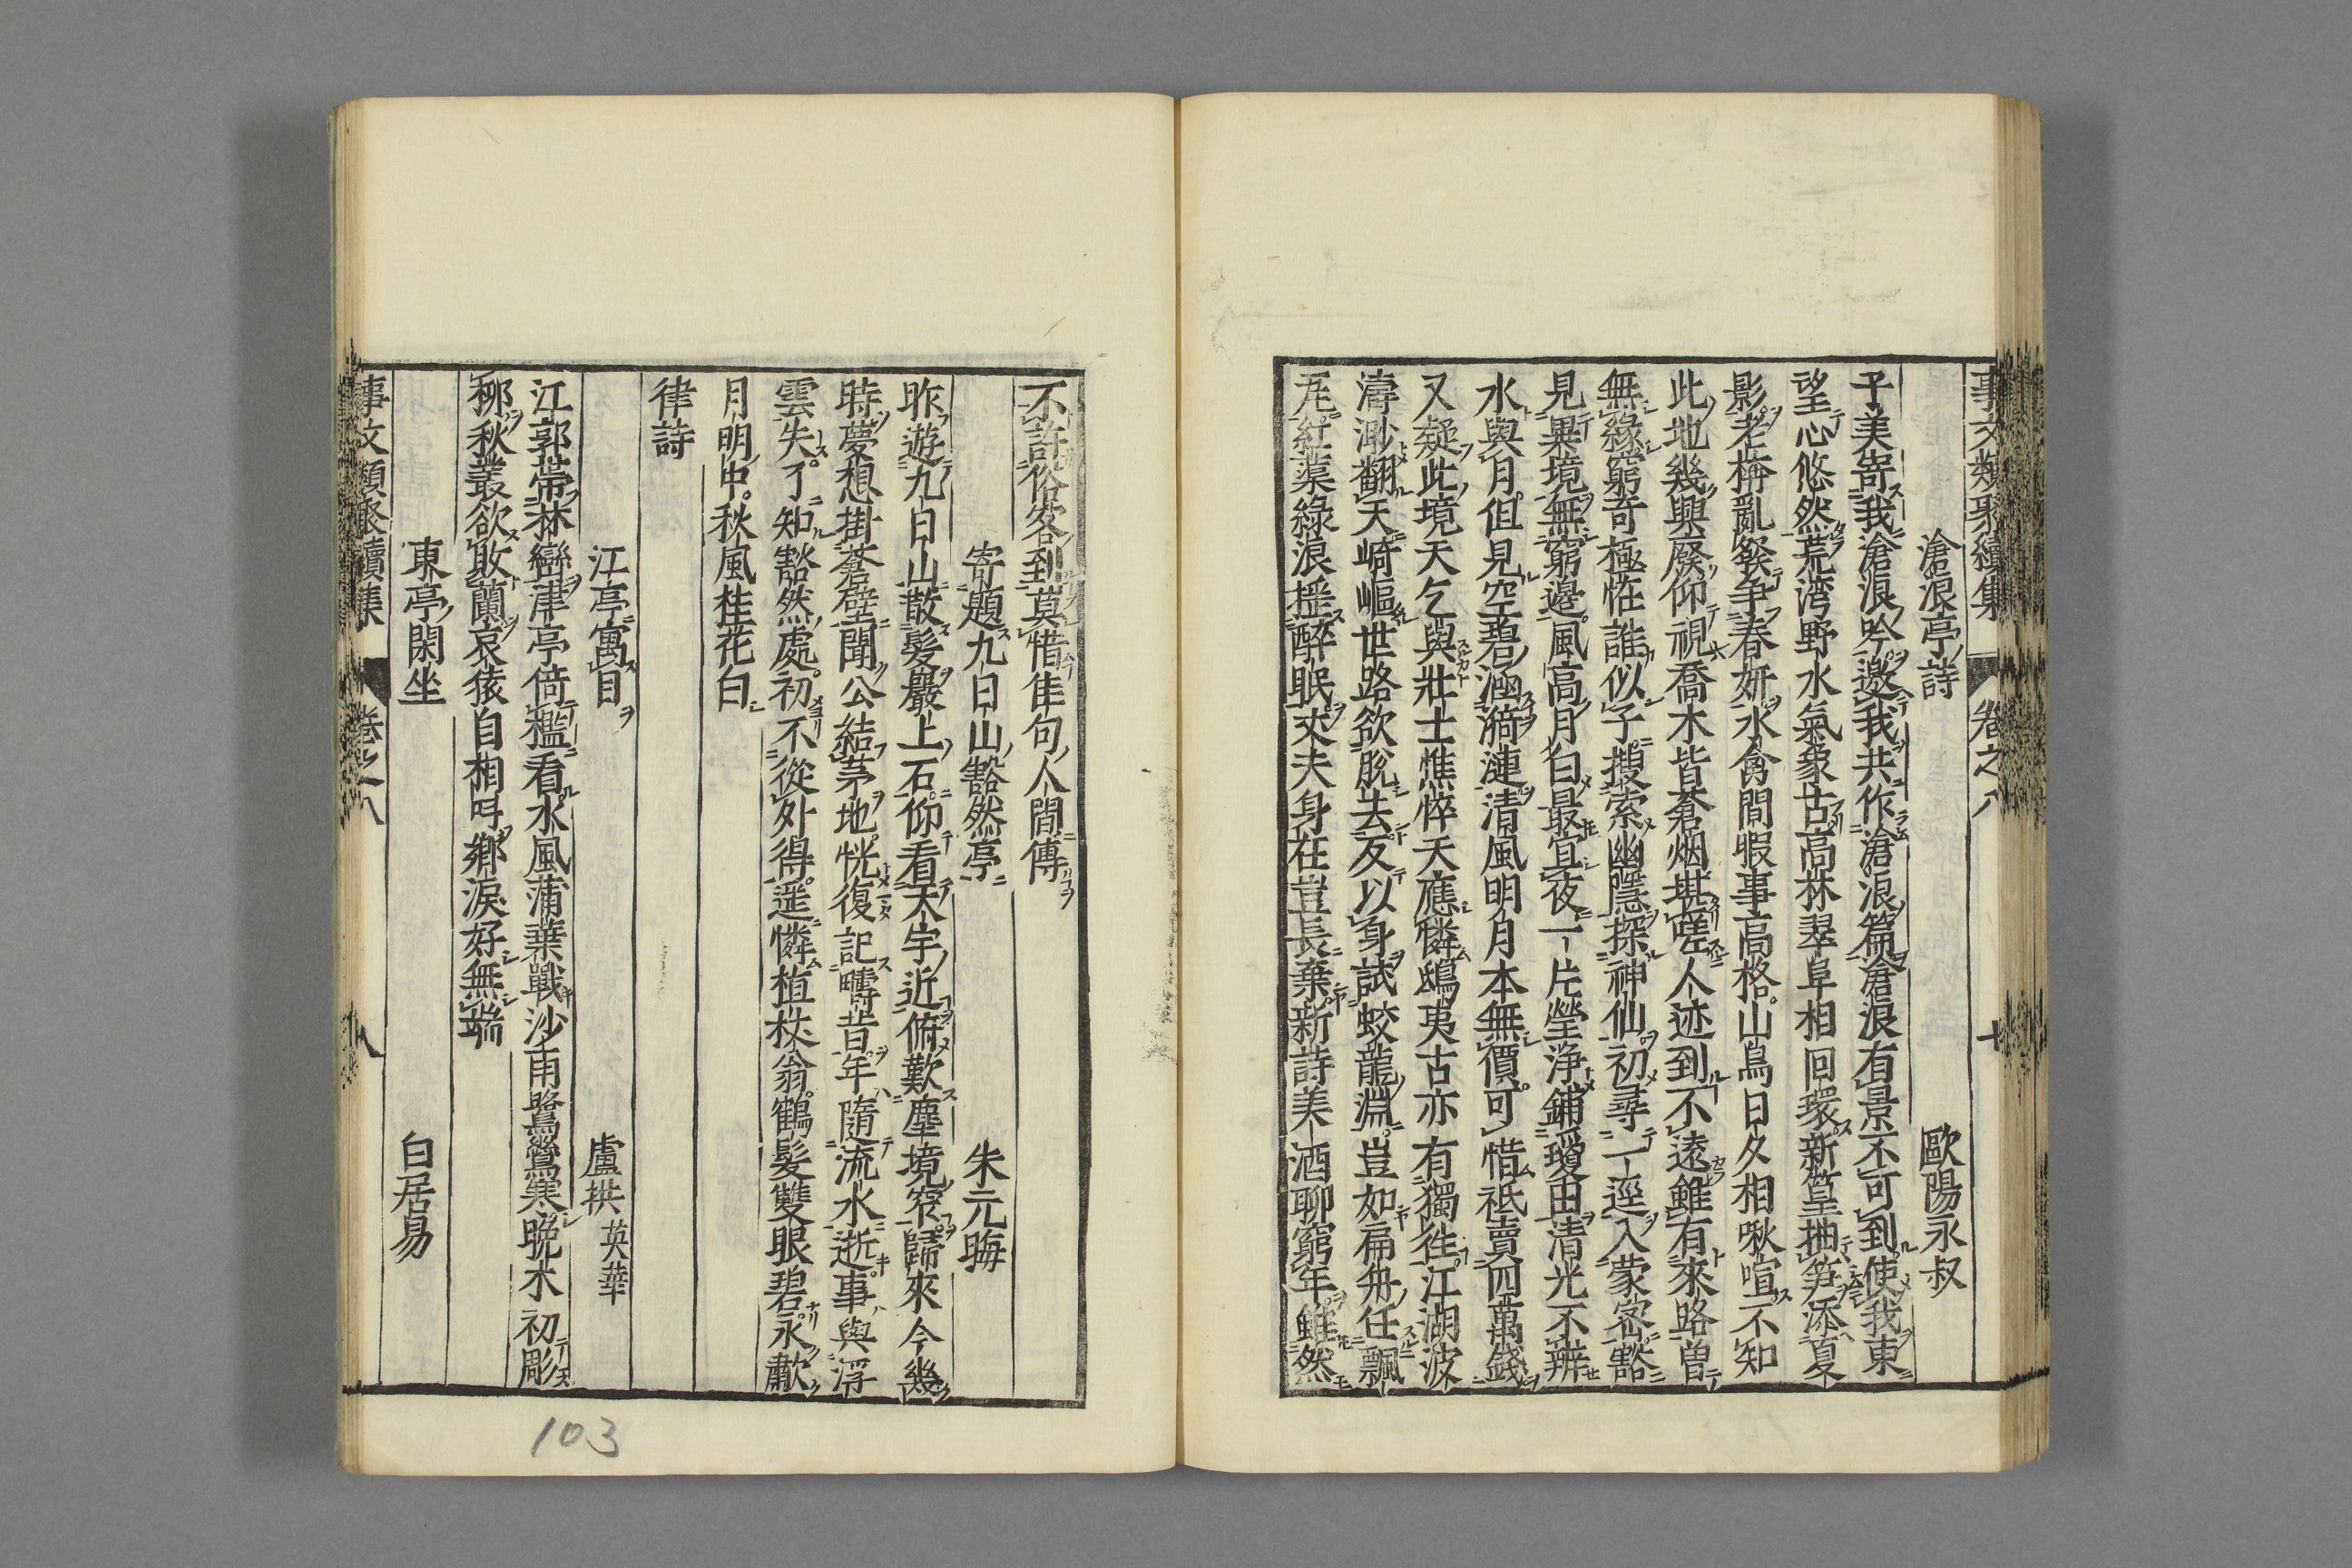 事文類聚續集 卷之八 七
滄浪亭詩 歐陽永叔
子美寄我滄浪吟邀我共作滄浪篇滄浪有景不可到使我東
望心悠然荒湾野水氣象古高林翠阜相回環新篁抽笋添夏
影老枿亂發爭春妍水禽間暇事高格山鳥日夕相啾喧不知
此地幾興廢仰視喬木皆蒼烟堪嗟人迹到不遠雖有來路曽
無緣窮奇極恠誰似子搜索幽隱探神仙初尋一逕入蒙密豁
見異境無窮邊風高月白最宜夜一片瑩浄鋪瓊田清光不辨
水與月但見空碧涵漪漣清風明月本無價可惜祗賣四萬錢
又疑此境天乞與壯士憔悴天應憐鴟夷古亦有獨徃江湖波
濤渺翻天崎嶇世路欲脫去反以身試蛟龍淵豈如扁舟任飄
兀紅蕖綠浪揺醉眠丈夫身在豈長棄新詩美酒聊窮年雖然
不許俗客到莫惜佳句人間傳
寄題九日山豁然亭 朱元晦
昨遊九日山散髮巖上石仰看天宇近俯歎塵境窄歸來今幾
時夢想掛蒼壁聞公結茅地恍復記疇昔年隨流水逝事與浮
雲失了知豁然處初不從外得遥憐植杖翁鶴髮雙眼碧永歗
月明中秋風桂花白
律詩
江亭寓目 盧拱 英華
江郭帶林巒津亭倚檻看水風蒲葉戰沙雨鷺鷥寒晚木初彫
柳秋叢欲敗蘭哀猿自相呌鄉淚好無端
東亭閑坐 白居易
事文類聚續集 卷之八 八
103